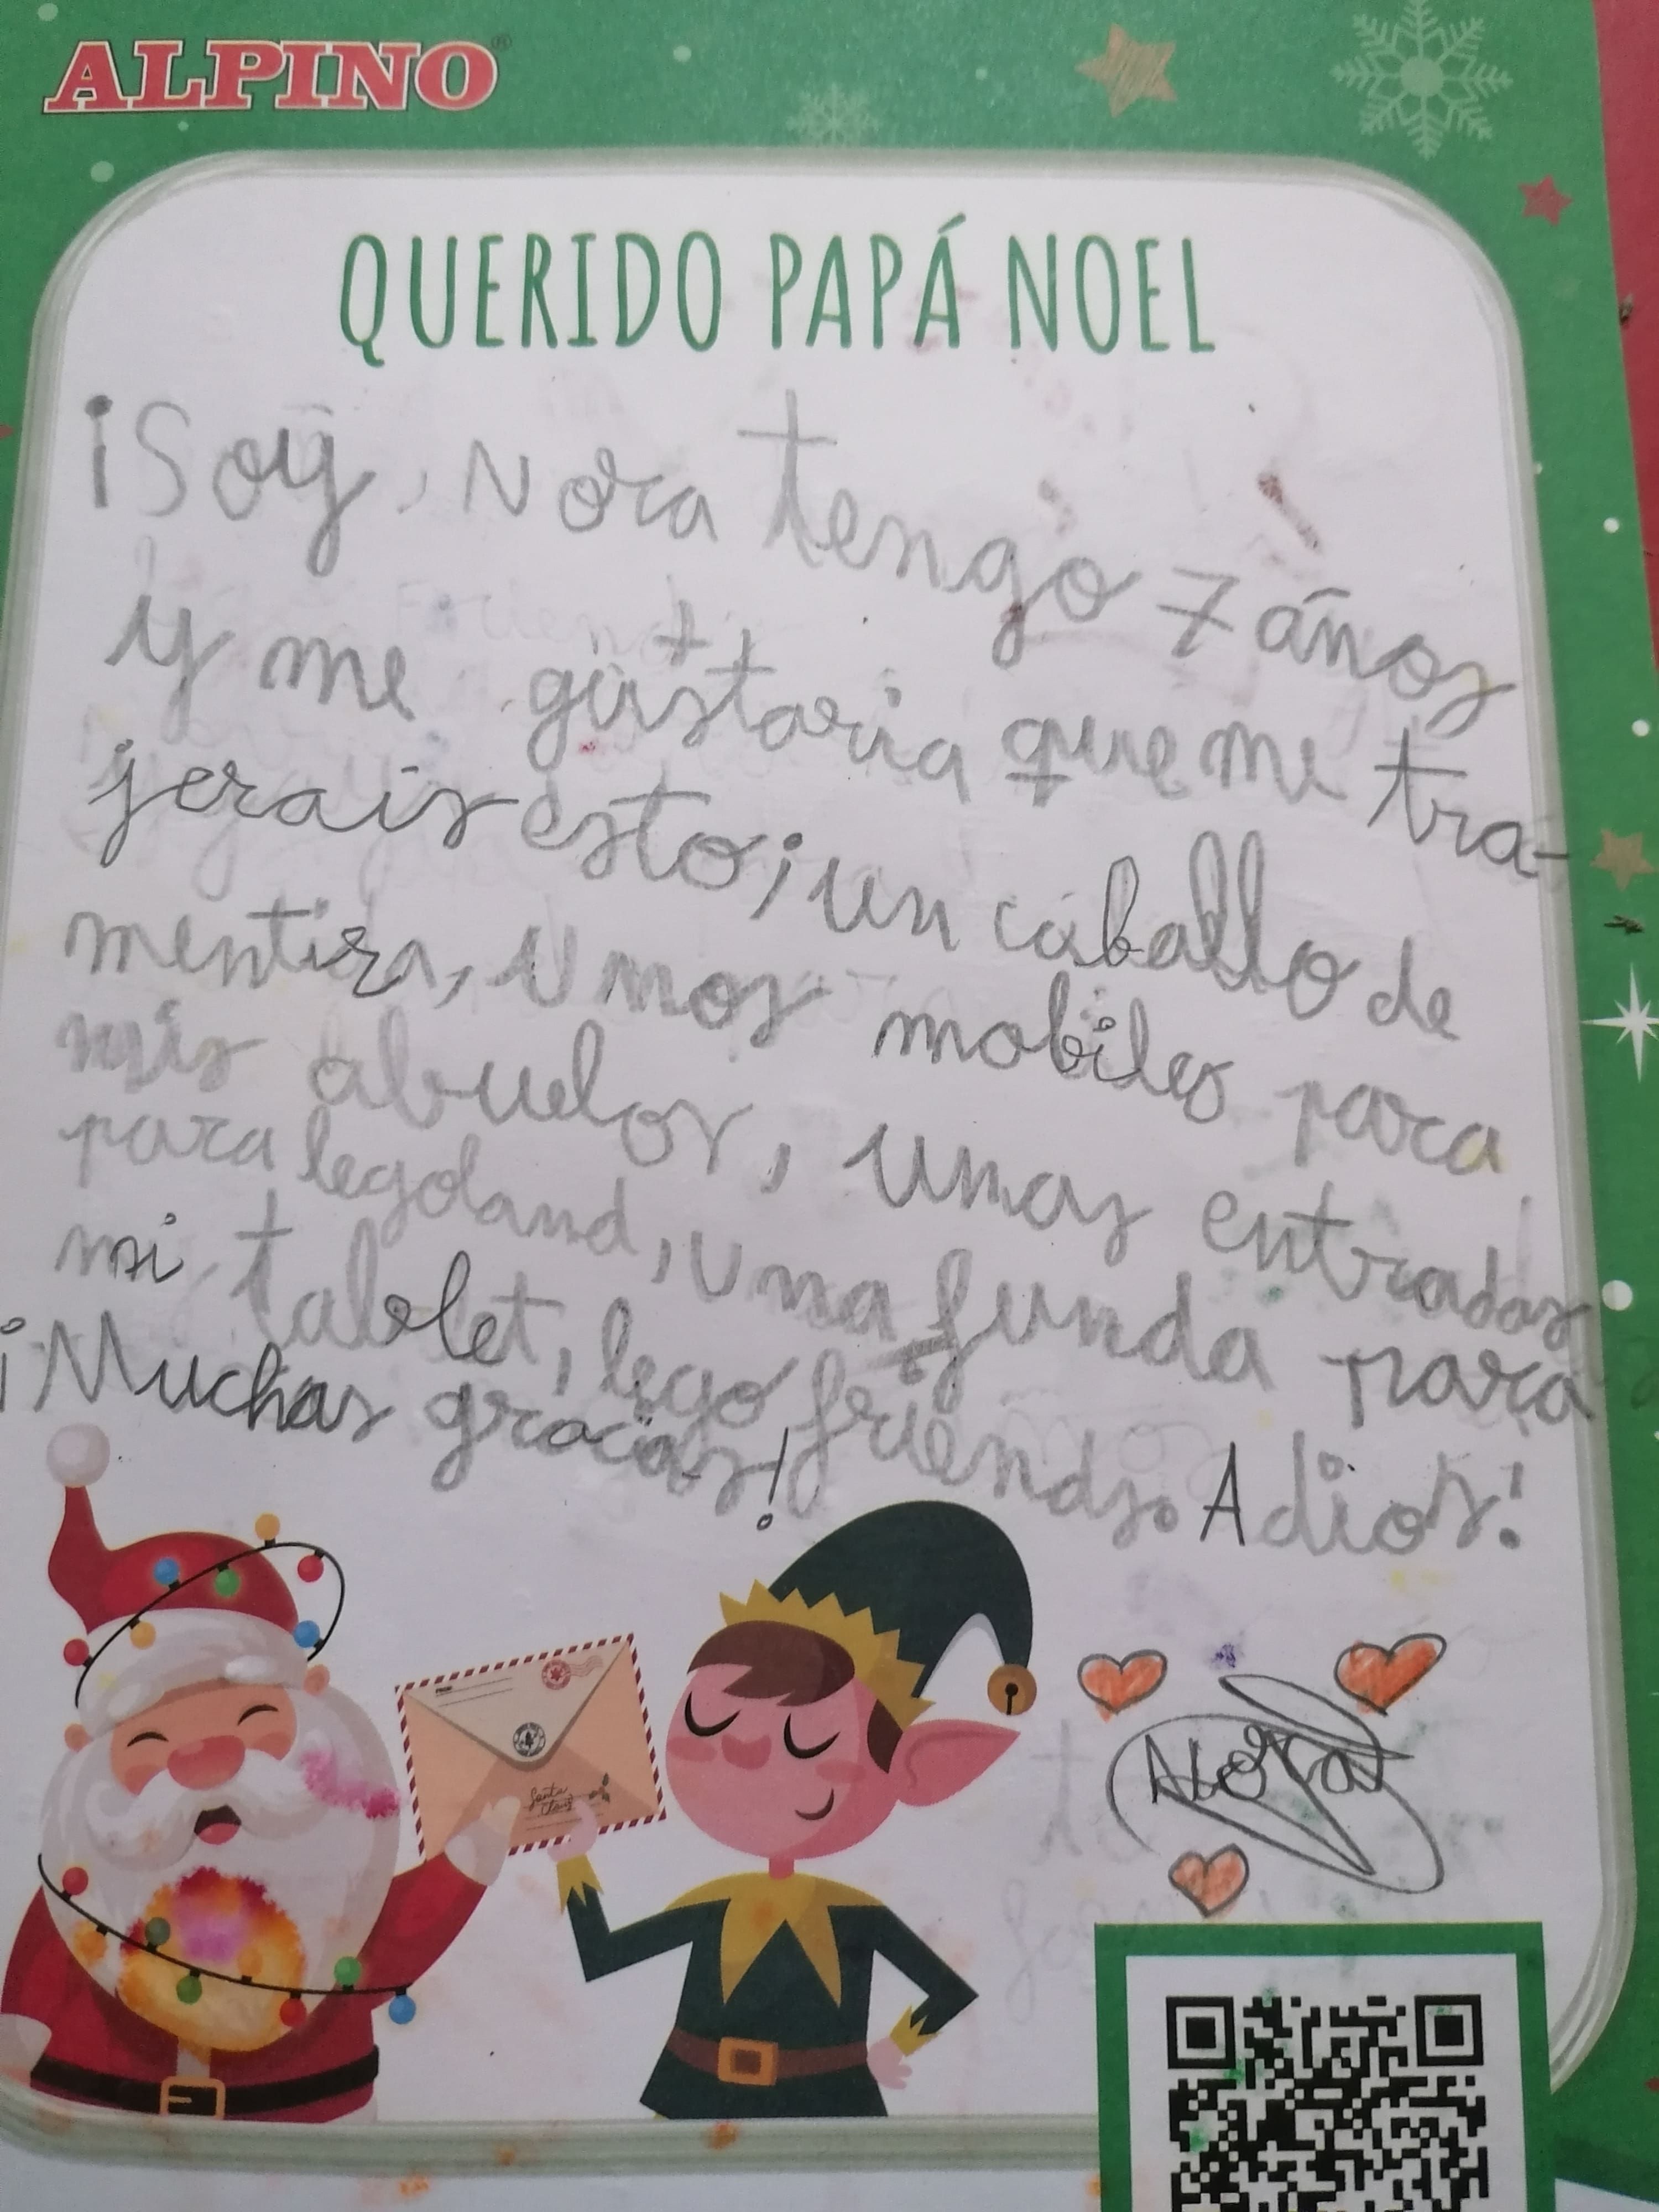 ALPINO
QUERIDO PAPÁ NOEL
¡Soy, Nora tengo 7 años
y me gustaria que me tra-
jerais esto; un caballo de
mentira, unos mobiles para
mis abuelos, unas entradas
para legoland, una funda para
mi tablet, lego friends. Adios!
¡Muchas gracias!
Santa Claus
Nora